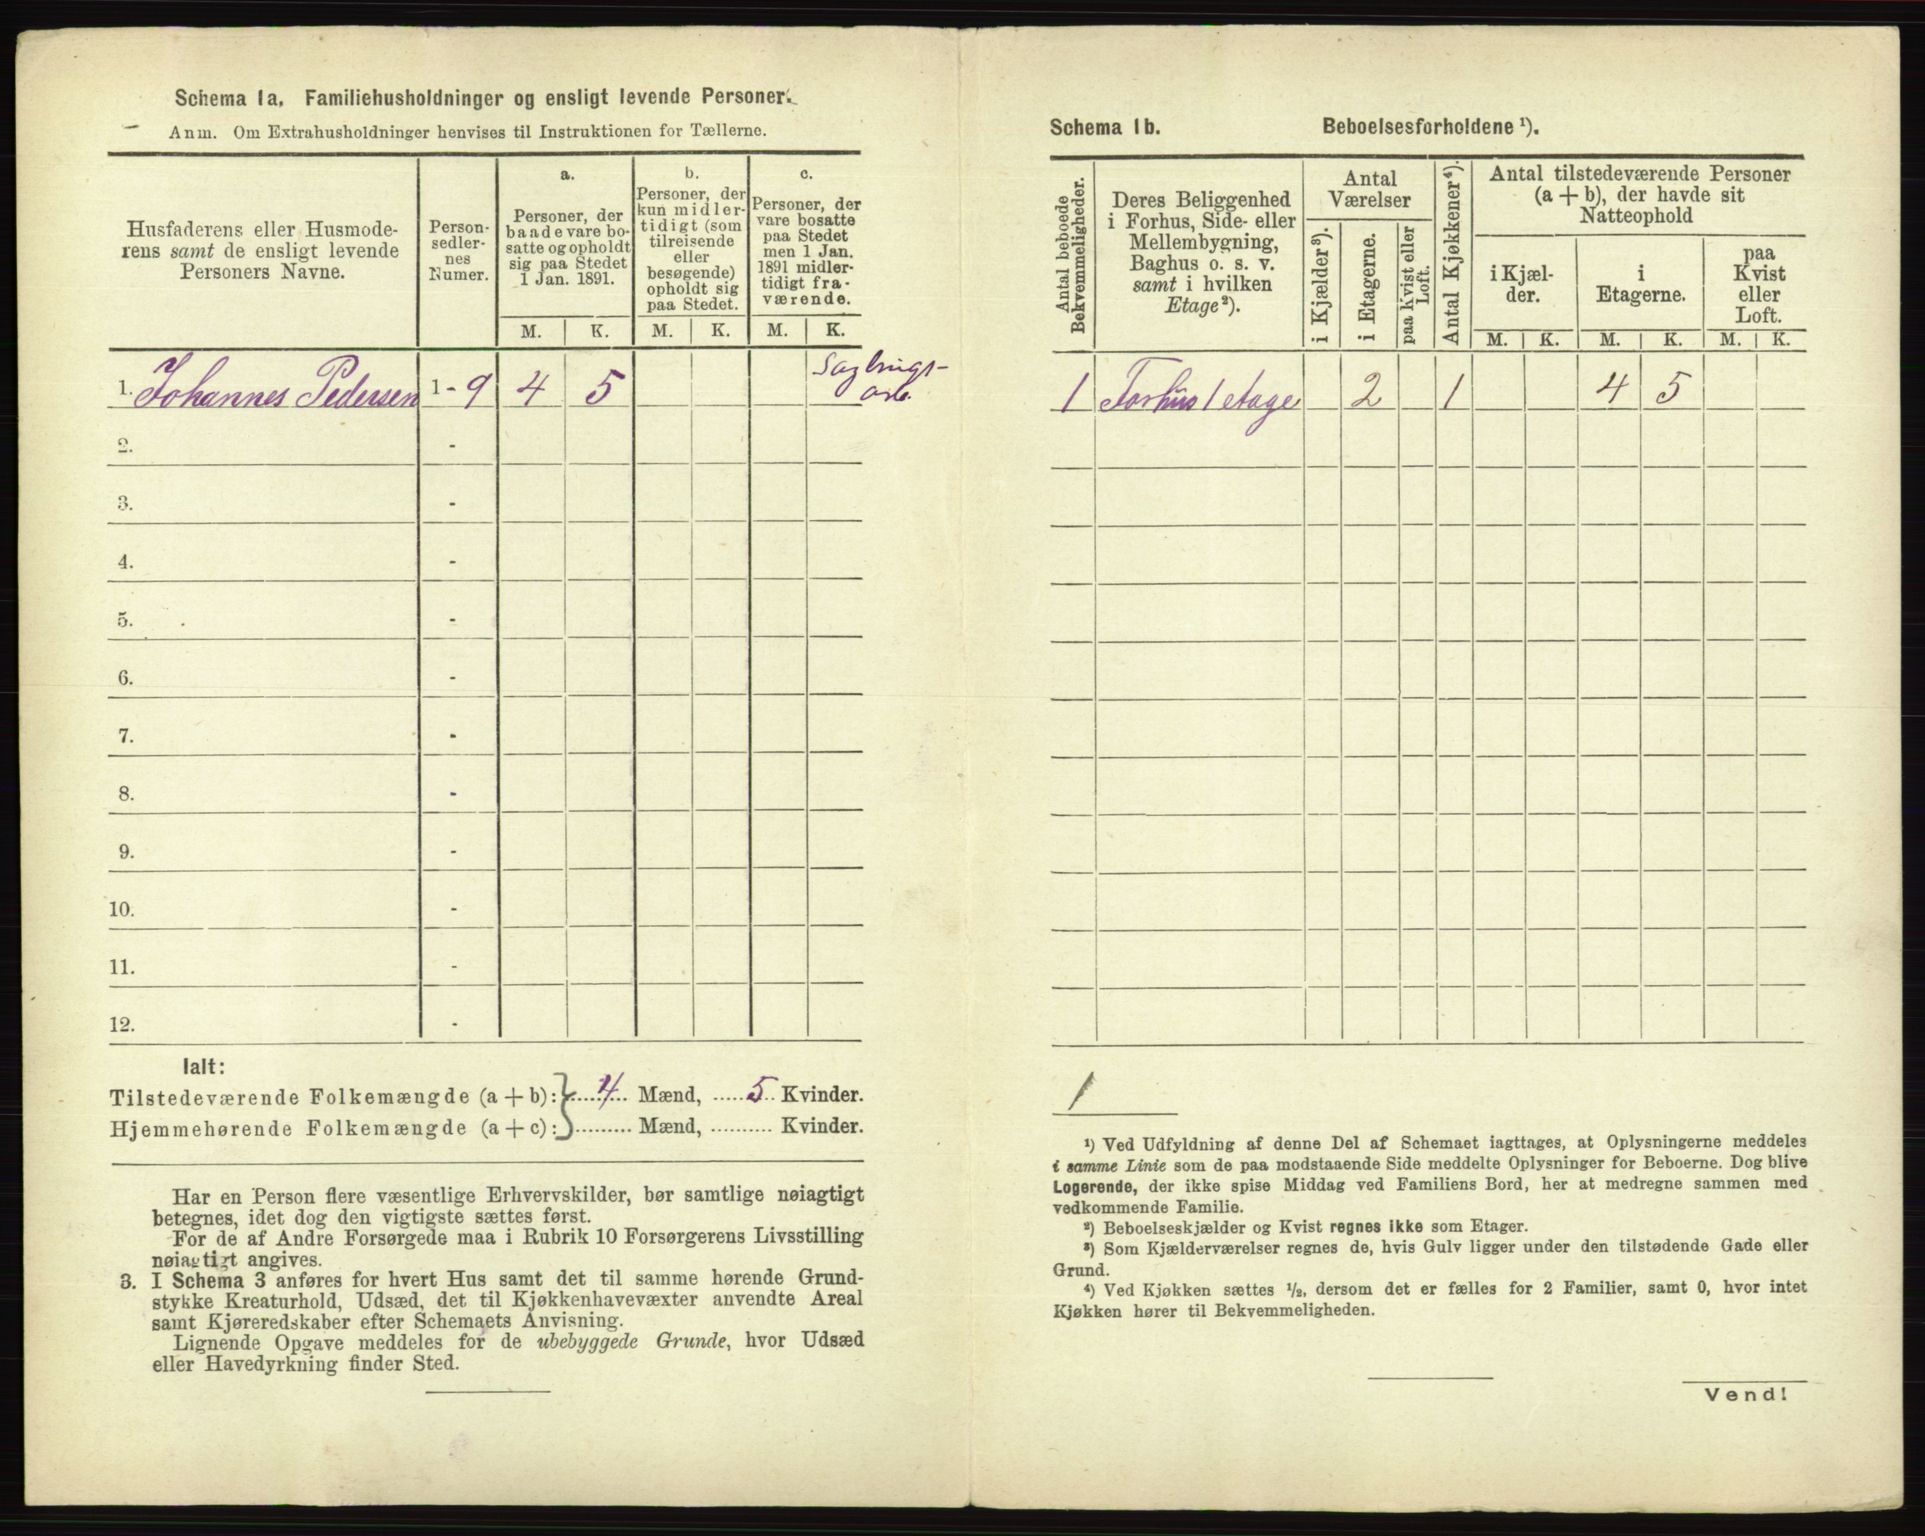 Schema 1a. Familiehusholdninger og ensligt levende Personer.
Anm. Om Extrahusholdninger henvises til Instruktionen for Tællerne.
Husfaderens eller Husmode-
rens samt de ensligt levende
Personers Navne.
Person-
sedler-
nes
Numer.
a.
Personer, der
baade vare bo-
satte og opholdt
sig paa Stedet
1 Jan. 1891.
M. K.
b.
Personer, der
kun midler-
tidigt (som
tilreisende
eller
besøgende)
opholdt sig
paa Stedet.
M. K.
c.
Personer, der
vare bosatte
paa Stedet
men 1 Jan.
1891 midler-
tidigt fra-
værende.
M. K.
1. Johannes Pedersen 1 - 9 4 5
2. -
3. -
4. -
5. -
6. -
7. -
8. -
9. -
10. -
11. -
12. -
Ialt:
Tilstedeværende Folkemængde (a + b): 4 Mænd, 5 Kvinder.
Hjemmehørende Folkemængde (a + c): Mænd, Kvinder.
Har en Person flere væsentlige Erhvervskilder, bør samtlige nøiagtigt
betegnes, idet dog den vigtigste sættes først.
For de af Andre Forsørgede maa i Rubrik 10 Forsørgerens Livsstilling
nøiagtigt angives.
3. I Schema 3 anføres for hvert Hus samt det til samme hørende Grund-
stykke Kreaturhold, Udsæd, det til Kjøkkenhavevæxter anvendte Areal
samt Kjøreredskaber efter Schemaets Anvisning.
Lignende Opgave meddeles for de ubebyggede Grunde, hvor Udsæd
eller Havedyrkning finder Sted.
Schema 1b. Beboelsesforholdene ¹).
Antal beboede
Bekvemmeligheder.
Deres Beliggenhed
i Forhus, Side- eller
Mellembygning,
Baghus o. s. v.
samt i hvilken
Etage²).
Antal
Værelser
i Kjælder³).
i Etagerne.
paa Kvist eller
Loft.
Antal Kjøkkener⁴).
Antal tilstedeværende Personer
(a + b), der havde sit
Natteophold
i Kjæl-
der.
M. K.
i
Etagerne.
M. K.
paa
Kvist
eller
Loft.
M. K.
1 Forhus 1 etage 2 1 4 5
1
¹) Ved Udfyldning af denne Del af Schemaet iagttages, at Oplysningerne meddeles
i samme Linie som de paa modstaaende Side meddelte Oplysninger for Beboerne. Dog blive
Logerende, der ikke spise Middag ved Familiens Bord, her at medregne sammen med
vedkommende Familie.
²) Beboelseskjælder og Kvist regnes ikke som Etager.
³) Som Kjælderværelser regnes de, hvis Gulv ligger under den tilstødende Gade eller
Grund.
⁴) Ved Kjøkken sættes ½, dersom det er fælles for 2 Familier, samt 0, hvor intet
Kjøkken hører til Bekvemmeligheden.
Vend!